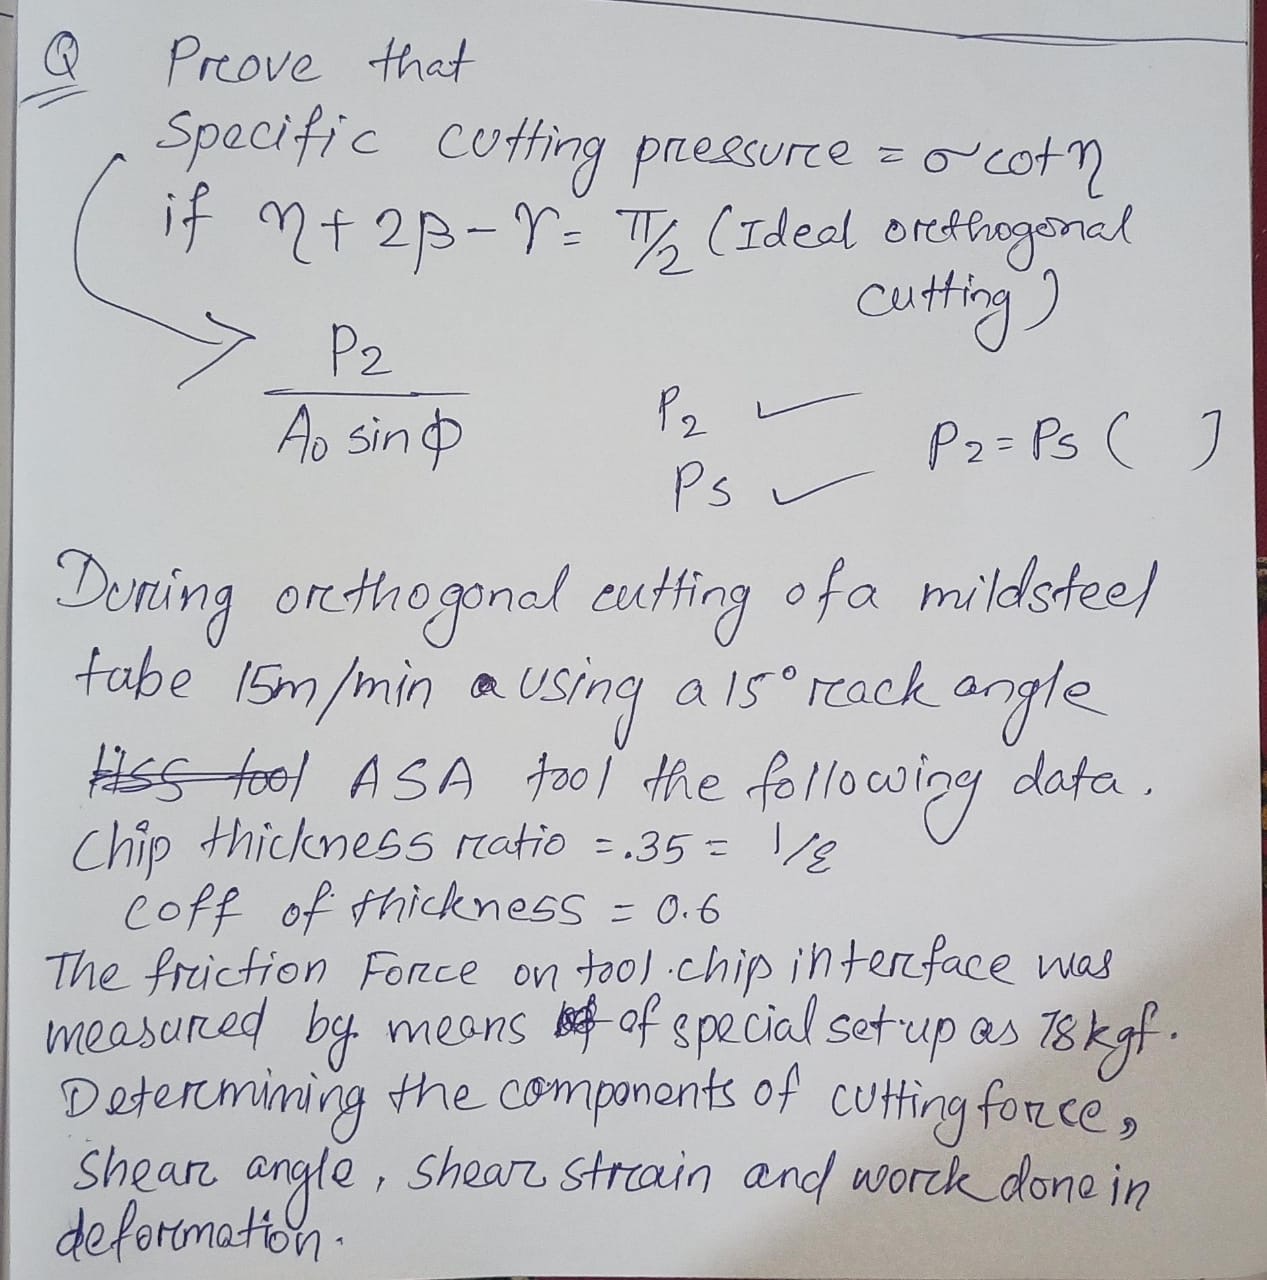 Q Prove that
Specific cutting pressure = σ cot η
if η + 2β - γ = π/2 (Ideal orthogonal
cutting)
P2
A0 sin φ
P2 ✓
Ps ✓
P2 = Ps ( )
During orthogonal cutting of a mildsteel
tube 15m/min a using a 15° rack angle
Hss tool ASA tool the following data.
Chip thickness ratio = .35 = 1/ξ
coff of thickness = 0.6
The friction Force on tool.chip interface was
measured by means of special set-up as 78 kgf.
Determining the components of cutting force,
Shear angle, Shear strain and work done in
deformation.